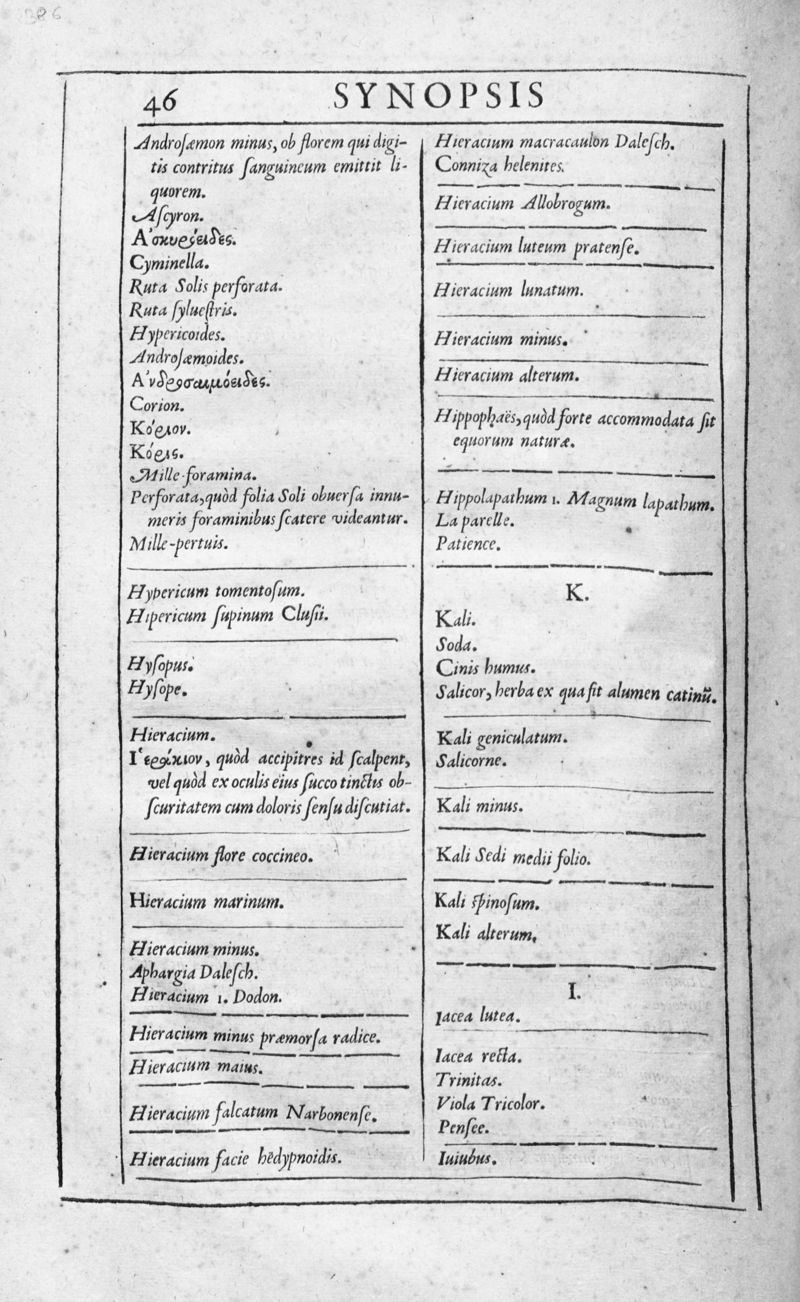 386
46 SYNOPSIS
Androſæmon minus, ob florem qui digi-
tis contritus ſanguineum emittit li-
quorem.
Aſcyron.
Ἀσκυρόειδες.
Cyminella.
Ruta Solis perforata.
Ruta ſylueſtris.
Hypericoides.
Androſæmoides.
Ἀνδροσαιμόειδες.
Corion.
Κόριον.
Κόρις.
Mille-foramina.
Perforata, quòd folia Soli obuerſa innu-
meris foraminibus ſcatere videantur.
Mille-pertuis.
Hypericum tomentoſum.
Hipericum ſupinum Cluſii.
Hyſopus.
Hyſope.
Hieracium.
Ἱεράκιον, quòd accipitres id ſcalpent,
vel quòd ex oculis eius ſucco tinctis ob-
ſcuritatem cum doloris ſenſu diſcutiat.
Hieracium flore coccineo.
Hieracium marinum.
Hieracium minus.
Aphargia Daleſch.
Hieracium 1. Dodon.
Hieracium minus præmorſa radice.
Hieracium maius.
Hieracium falcatum Narbonenſe.
Hieracium facie hedypnoidis.
Hieracium macracaulon Daleſch.
Conniza helenites.
Hieracium Allobrogum.
Hieracium luteum pratenſe.
Hieracium lunatum.
Hieracium minus.
Hieracium alterum.
Hippophaës, quòd forte accommodata ſit
equorum naturæ.
Hippolapathum 1. Magnum lapathum.
La parelle.
Patience.
K.
Kali.
Soda.
Cinis humus.
Salicor, herba ex qua fit alumen catinũ.
Kali geniculatum.
Salicorne.
Kali minus.
Kali Sedi medii folio.
Kali ſpinoſum.
Kali alterum.
I.
Iacea lutea.
Iacea recta.
Trinitas.
Viola Tricolor.
Penſee.
Iuiubus.